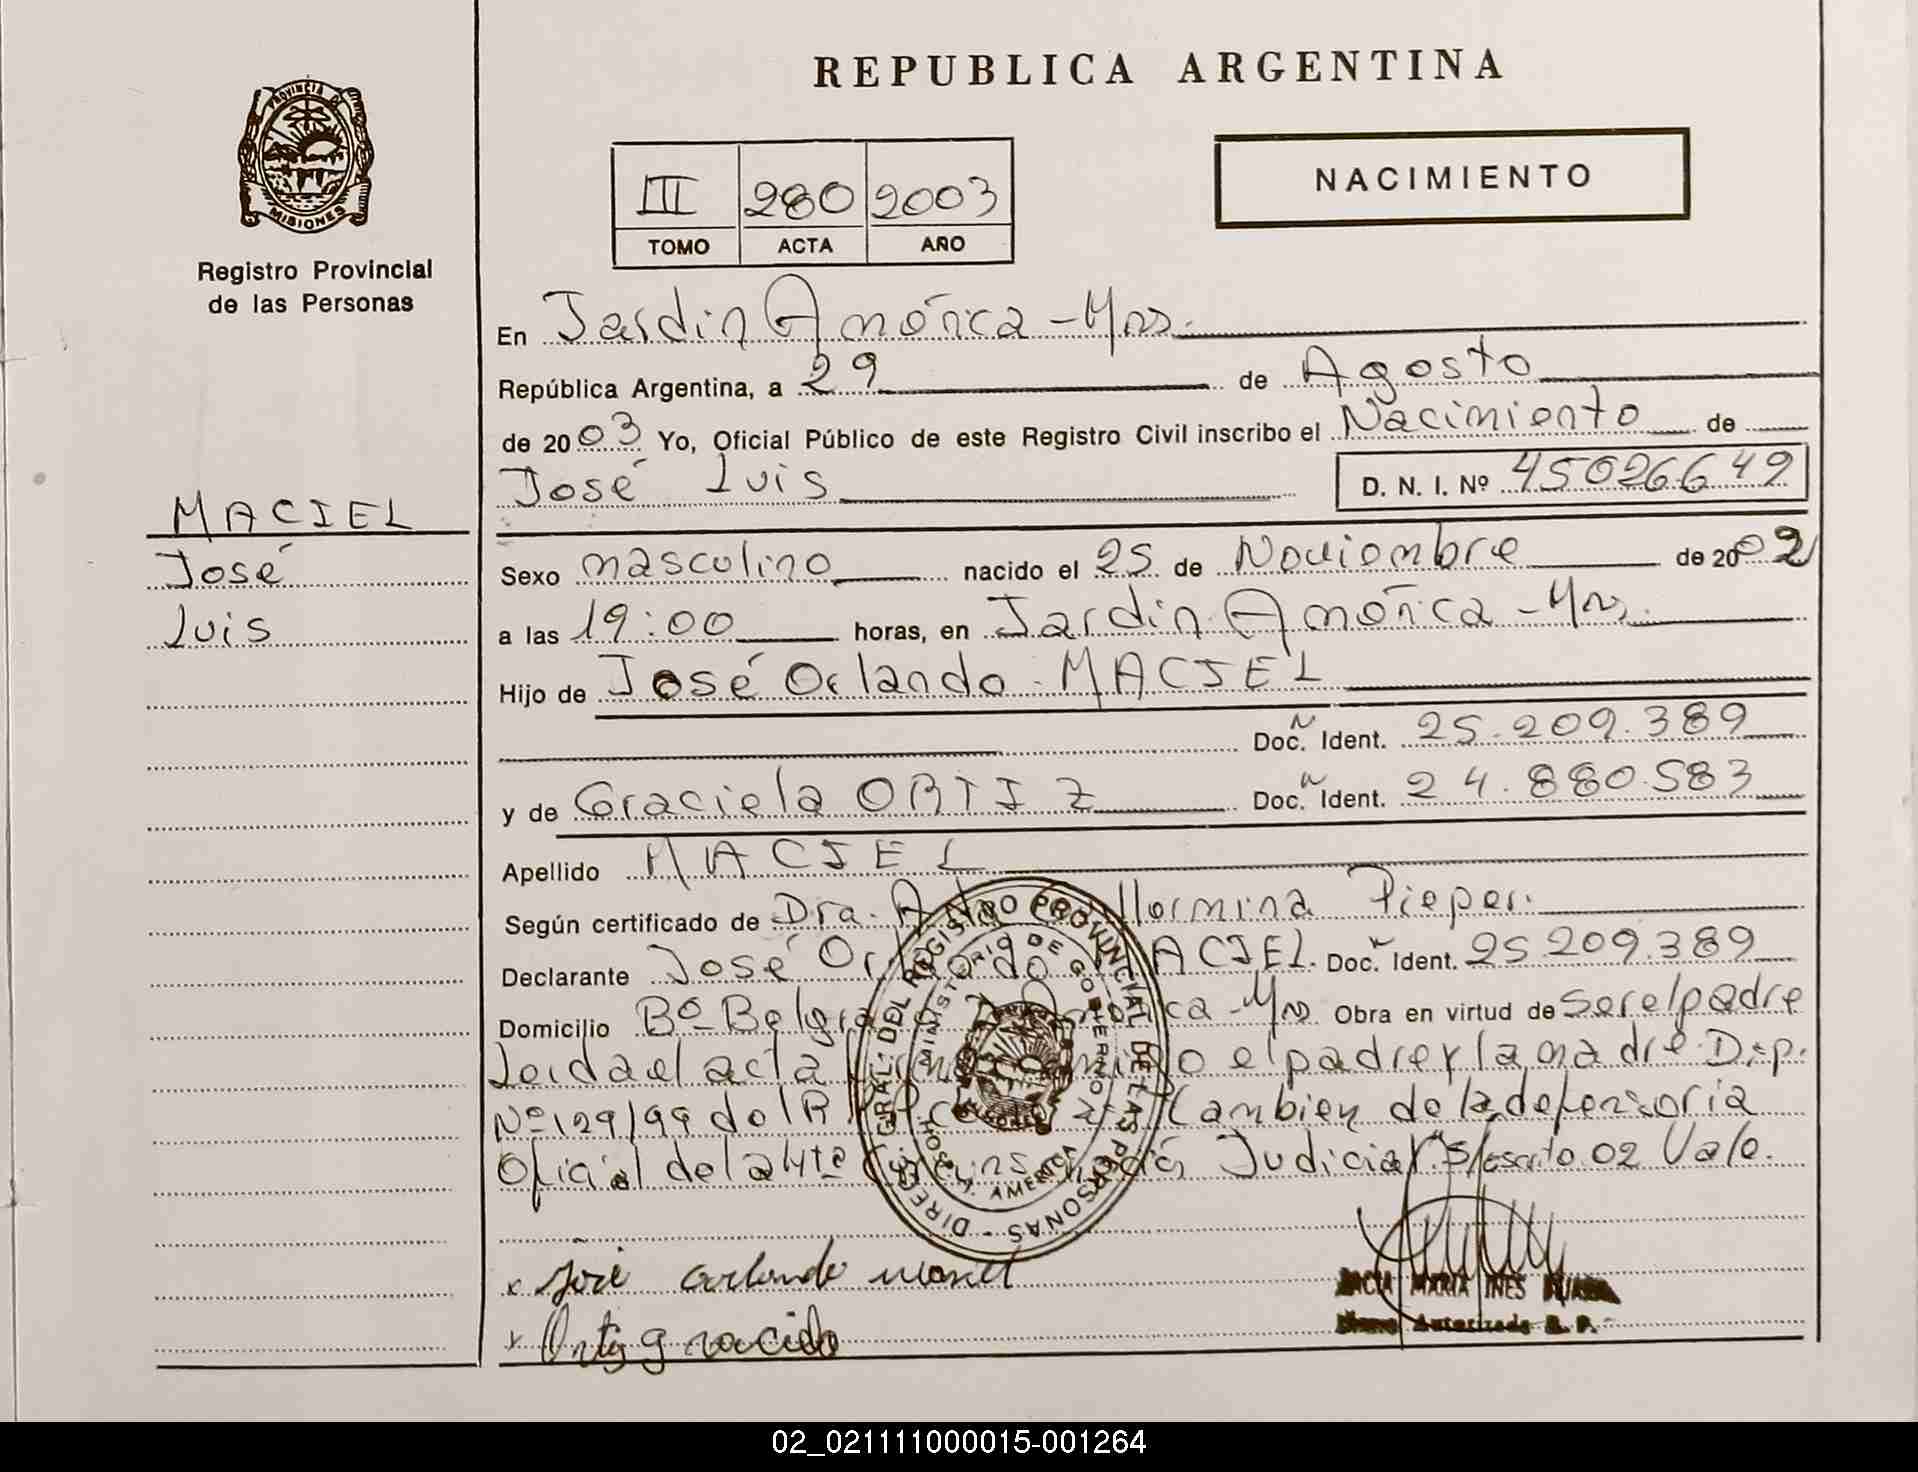 REPUBLICA ARGENTINA
PROVINCIA DE
MISIONES
Registro Provincial
de las Personas
III 280 2003
TOMO ACTA AÑO
NACIMIENTO
En Jardin América - Mns.
República Argentina, a 29 de Agosto
de 2003 Yo, Oficial Público de este Registro Civil inscribo el Nacimiento de
José Luis D. N. I. Nº 45026649
MACIEL
José
Luis
Sexo masculino nacido el 25 de Noviembre de 2002
a las 19:00 horas, en Jardin América - Mns.
Hijo de José Orlando MACIEL
Doc. Ident. 25.209.389
y de Graciela ORTIZ Doc. Ident. 24.880.583
Apellido MACIEL
Según certificado de Dra. Hermina Pieper.
Declarante José Orlando MACIEL. Doc. Ident. 25209.389
Domicilio Bº Belgrano América - Mns Obra en virtud de ser el padre
Leida el acta el padre y la madre. Disp.
Nº 129/99 del R. tambien de la defensoria
Oficial de la 4ta Judicial. S/escrito 02 Vale.
DIREC. GRAL. DEL REGISTRO PROVINCIAL DE LAS PERSONAS
MINISTERIO DE GOBIERNO
AMERICA
x José orlando maciel
x Ortiz graciela
MARIA INES
Autorizada R. P.
02_021111000015-001264